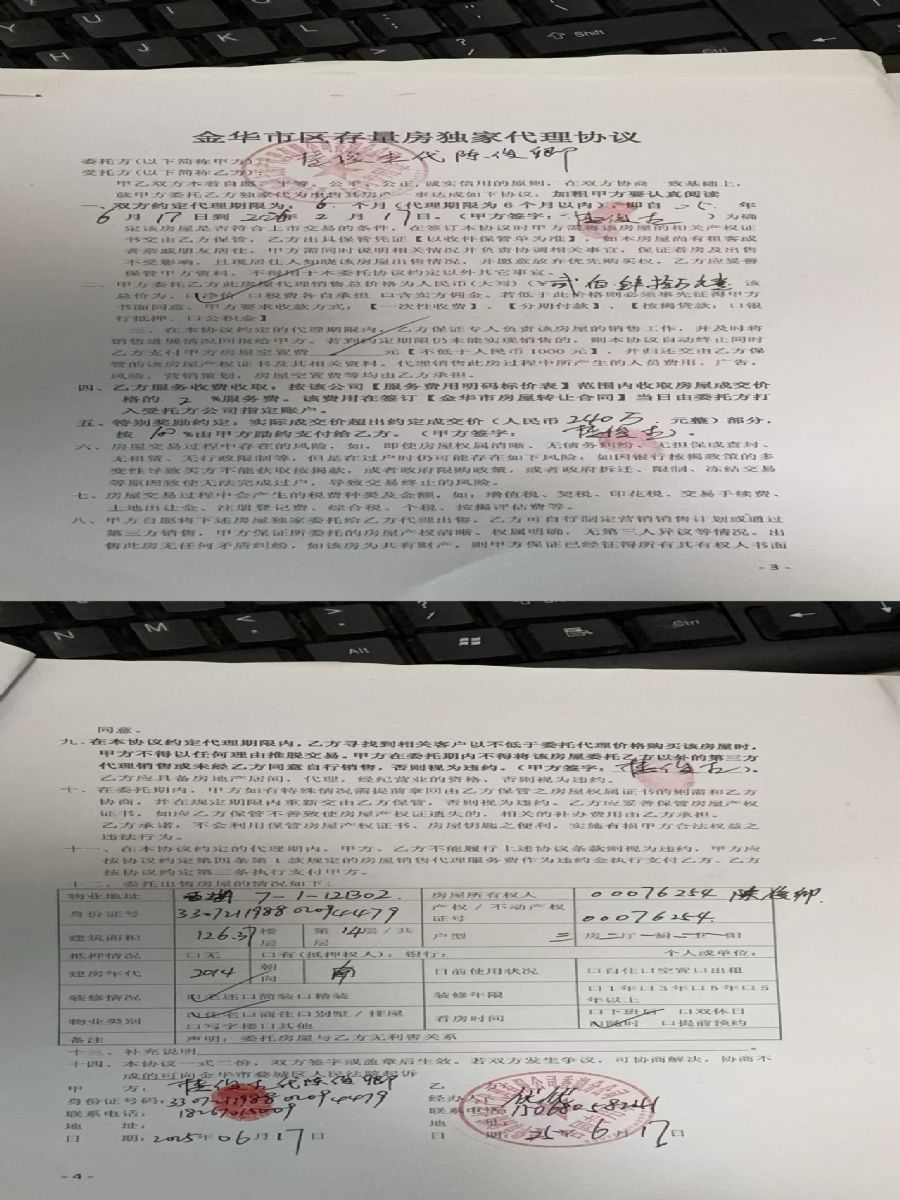 金华市区存量房独家代理协议
委托方(以下简称甲方): 桂俊杰代陈俊卿
受托方(以下简称乙方):
甲乙双方本着自愿、平等、公平、公正、诚实信用的原则,在双方协商一致基础上,
就甲方委托乙方独家代为出售其房产一事达成如下协议:加粗甲方要认真阅读
一、双方约定代理期限为: 6 个月(代理期限为6个月以内),即自 25 年
6月17日到 2025年 2月17日。(甲方签字: 桂俊杰 )为确
定该房屋是否符合上市交易的条件,在签订本协议时甲方需将该房屋的相关产权证
书交由乙方保管,乙方出具保管凭证【以收件保管单为准】,如本房屋尚有租客或
者亲戚朋友居住,甲方需同时说明相关情况并负责协调相关事宜,保证看房及出售
不受影响,且现居住人知晓该房屋出售情况,并愿意放弃优先购买权。乙方应妥善
保管甲方资料,不得用于本委托协议约定以外其它事宜。
二、甲方委托乙方此房屋代理销售总价格为人民币(大写)(¥贰佰肆拾万元整 该
总价为,口净价 口税费各自承担 口含卖方佣金。若低于此价格则必须事先征得甲方
书面同意。甲方要求收款方式:【一次性收费】、【分期付款】、【按揭贷款:口银
行抵押、口公积金】
三、在本协议约定的代理期限内,乙方保证专人负责该房屋的销售工作,并及时将
销售进展情况回报给甲方。若到约定期限仍未能实现销售的,则本协议自动终止同时
乙方支付甲方房屋空置费 元【不低于人民币1000元】,并归还交由乙方保
管的该房屋产权证书及其相关资料。代理销售此房过程中所产生的人员费用、广告,
风险,营销策划,房屋空置费等均由乙方承担。
四、乙方服务收费收取:按该公司【服务费用明码标价表】范围内收取房屋成交价
格的 2 %服务费。该费用在签订【金华市房屋转让合同】当日由委托方打
入受托方公司指定账户。
五、特别奖励约定:实际成交价超出约定成交价(人民币 240万 元整)部分,
按 100 %由甲方励约支付给乙方。(甲方签字: 桂俊杰 )。
六、房屋交易过程中存在的风险,如:即使房屋权属清晰、无债务纠纷、无担保或查封、
无租赁、无行政限制等,但是在过户时仍可能存在如下风险:如因银行按揭政策的多
变性导致买方不能获取按揭款,或者政府限购政策,或者政府拆迁、限制、冻结交易
等原因致使无法完成过户,导致交易终止的风险。
七、房屋交易过程中会产生的税费种类及金额,如:增值税、契税、印花税、交易手续费、
土地出让金、注册登记费、综合税、个税、按揭评估费等。
八、甲方自愿将下述房屋独家委托给乙方代理出售,乙方可自行制定营销销售计划或通过
第三方销售,甲方保证所委托的房屋产权清晰、权属明确,无第三人异议等情况。出
售此房无任何矛盾纠纷,如该房为共有财产,则甲方保证已经征得所有共有权人书面
- 3 -
同意。
九、在本协议约定代理期限内,乙方寻找到相关客户以不低于委托代理价格购买该房屋时,
甲方不得以任何理由推脱交易。甲方在委托期内不得将该房屋委托乙方以外的第三方
代理销售或未经乙方同意自行销售,否则视为违约。(甲方签字: 桂俊杰 )。
乙方应具备房地产居间,代理,经纪营业的资格,否则视为违约。
十、在委托期内,甲方如有特殊情况需提前拿回由乙方保管之房屋权属证书的则需和乙方
协商,并在规定期限内重新交由乙方保管,否则视为违约。乙方应妥善保管房屋产权
证书,如应乙方保管不善致使房屋产权证遗失的,相关的补办费用由乙方承担。
乙方承诺:不会利用保管房屋产权证书、房屋钥匙之便利,实施有损甲方合法权益之
违法行为。
十一、在本协议约定的代理期内,甲方、乙方不能履行上述协议条款则视为违约,甲方应
按协议约定第四条第1款规定的房屋销售代理服务费作为违约金执行支付乙方。乙方
按协议约定第三条执行支付甲方。
十二、委托出售房屋的情况如下:
物业地址 西湖 7-1-121302 房屋所有权人 00076254 陈俊卿
身份证号 330721198802094479 产权/不动产权证号 00076254.
建筑面积 126.37 楼层 第14层/共 层 户型 三房二厅一厨二卫一阳
抵押情况 口无 口有(抵押权人):银行: 个人或单位:
建房年代 2014 朝向 南 目前使用状况 口自住口空置口出租
装修情况 口毛坯口简装口精装 装修年限 口1年口3年口5年口5年以上
物业类别 口住宅口商住口别墅/排屋口写字楼口其他 看房时间 口下班后 口双休日口随时 口提前预约
备注 声明:委托房屋与乙方无利害关系
十三、补充说明
十四、本协议一式二份,双方签字或盖章后生效。若双方发生争议,可协商解决,协商不
成的可向金华市婺城区人民法院起诉
甲 方: 桂俊杰代陈俊卿 乙 方:
身份证号码:330721198802094479 经办人:
联系电话: 18267015009 联系电话:15068058241
地 址: 地 址:
日 期:2025年06月17日 日 期: 25年6月17日
- 4 -